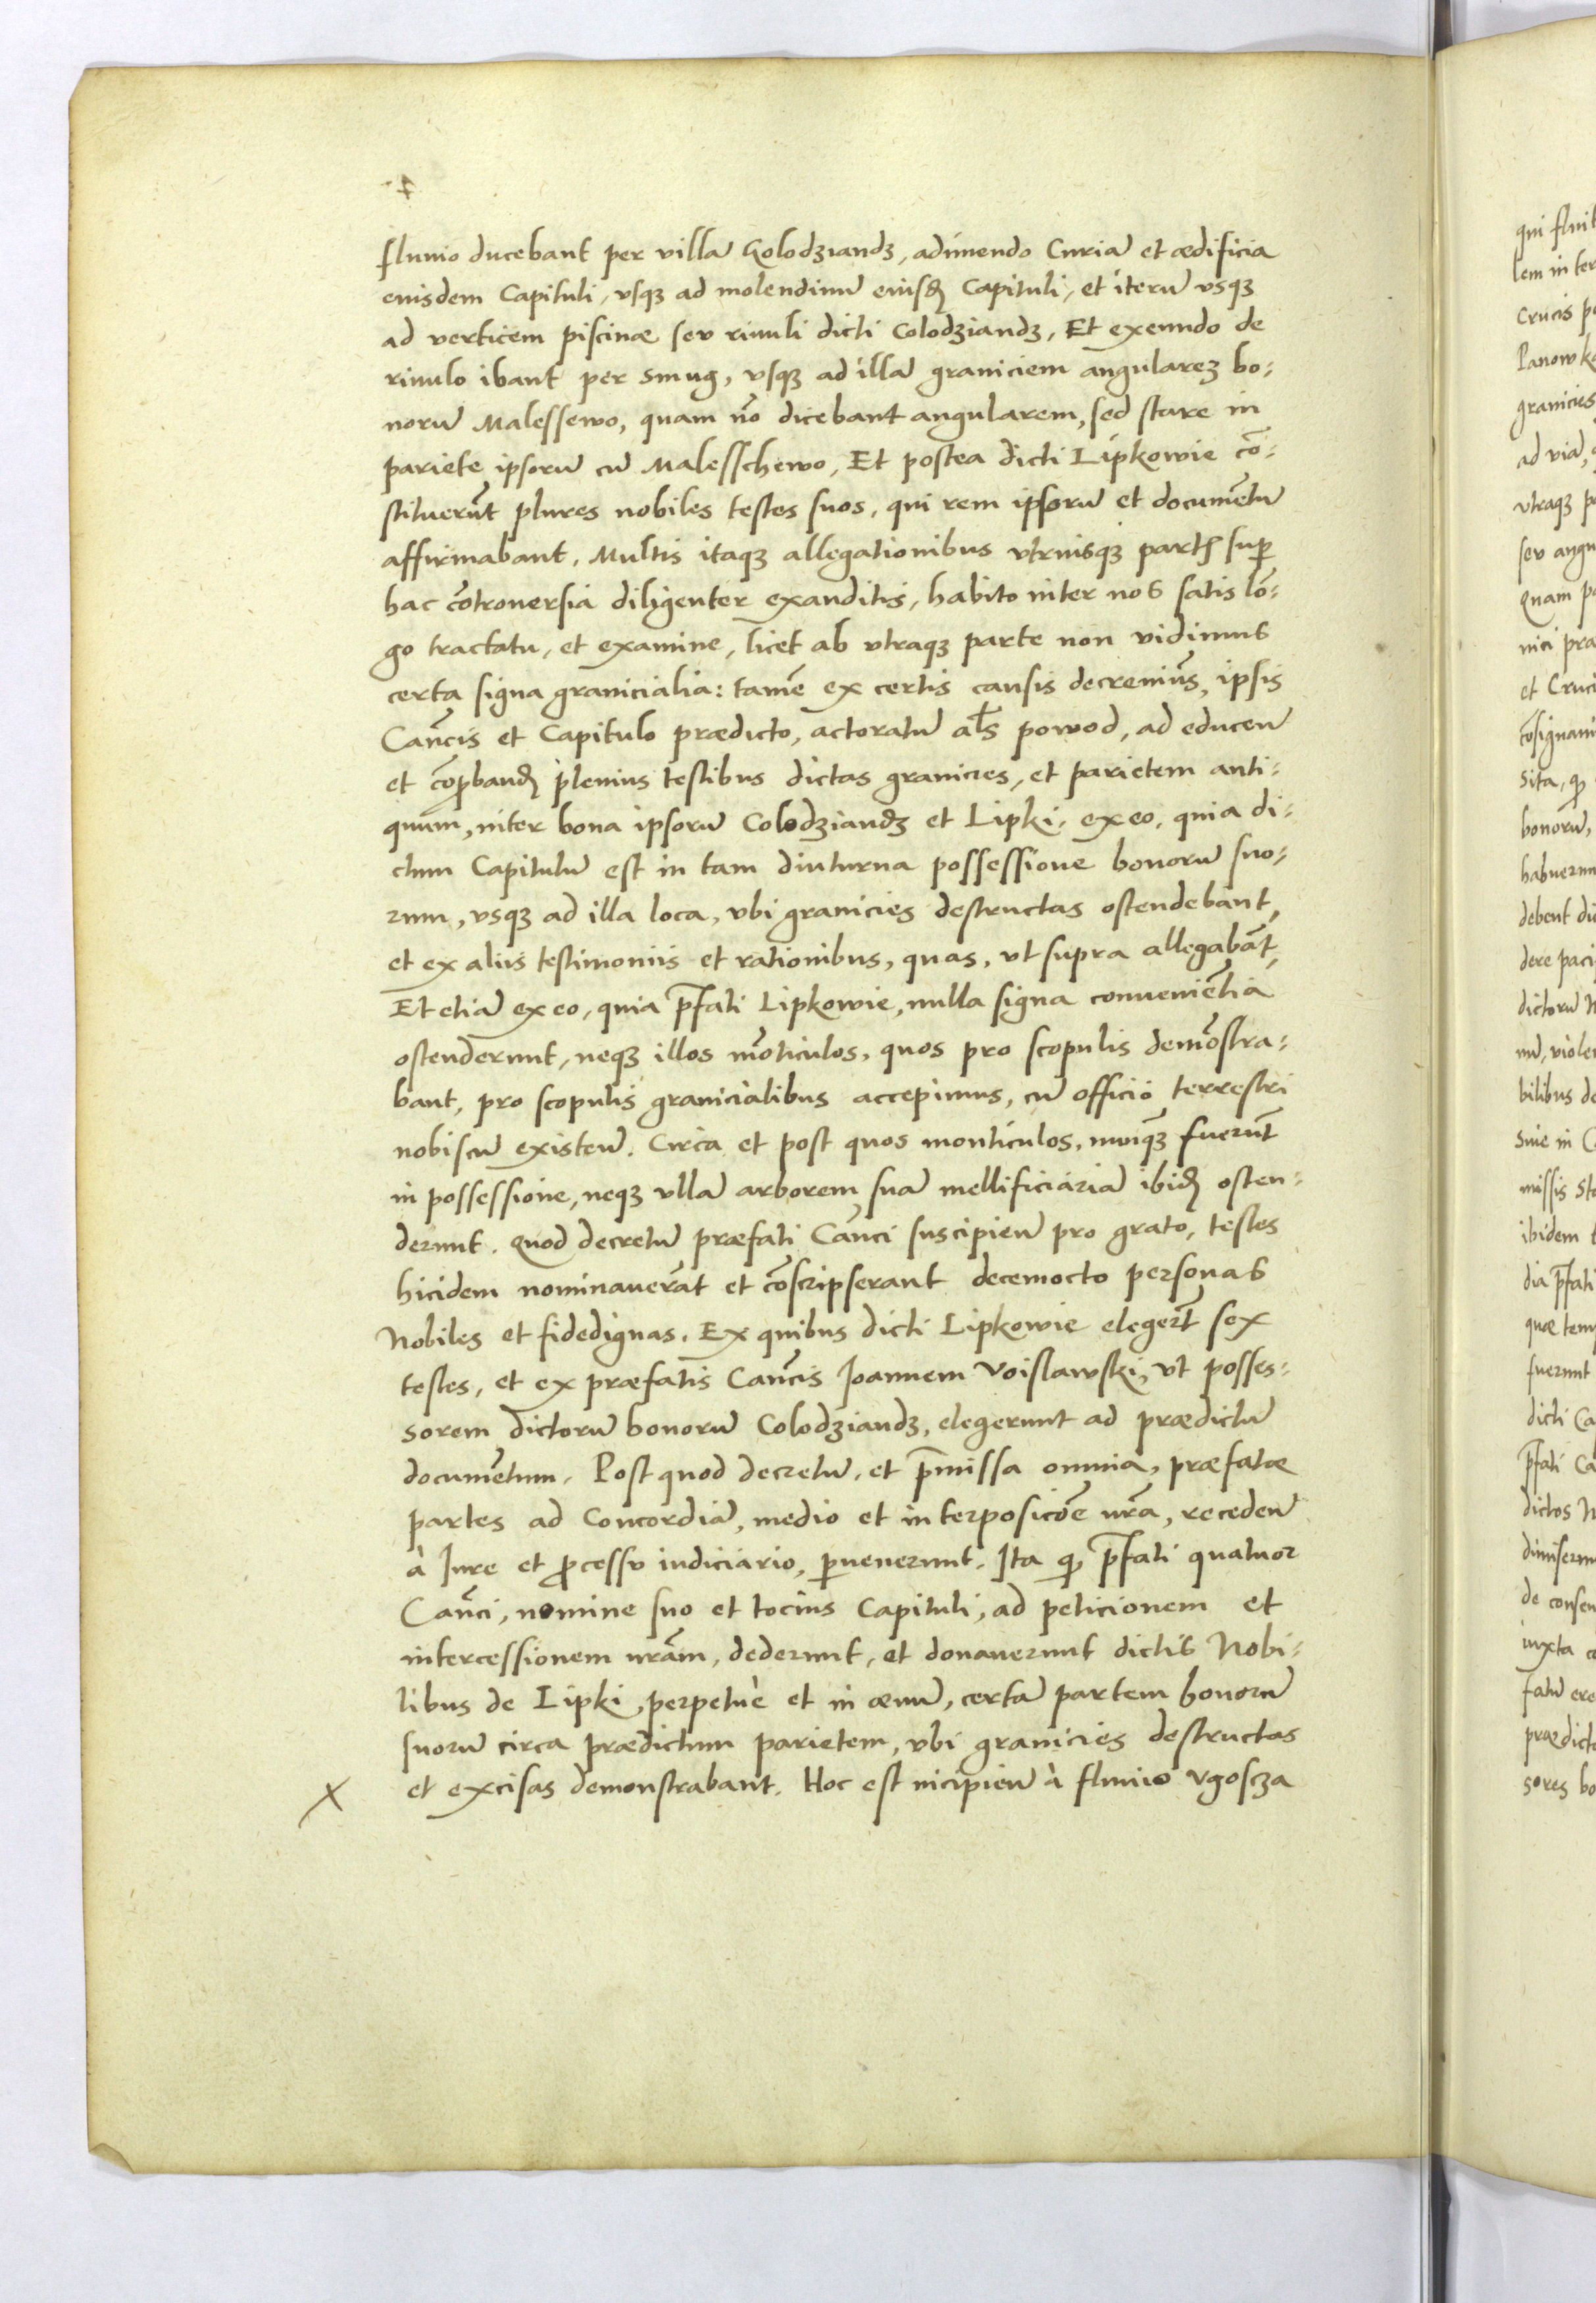 fluuio ducebant per villā Kolodziandz, adimendo Curiā et ædificia
eiusdem Capituli, vsqʒ ad molendinū eiusđ Capituli, et iterū vsqʒ
ad verticem piscinæ seu riuuli dicti Colodziandz, Et exeundo de
riuulo ibant per smug, vsqʒ ad illā graniciem angularez bo-
norū Malessewo, quam nō dicebant angularem, sed stare in
pariete ipsorū cū Malesschewo, Et postea dicti Lipkowie cō-
stituerūt plures nobiles testes suos, qui rem ipsorū et documētū
affirmabant. Multis itaqʒ allegationibus vtriusqʒ partꝭ suꝑ
hac cōtrouersia diligenter exauditis, habito inter nos satis lō-
go tractatu, et examine, licet ab vtraqʒ parte non vidimus
certa signa granicialia: tamē ex certis causis decreuimꝰ, ipsis
Canc̄is et Capitulo prædicto, actoratū als powod, ad educeñ
et cōprbanđ plenius testibus dictas granicies, et parietem anti-
quum, inter bona ipsorū Colodziandz et Lipki, ex eo, quia di-
ctum Capitulū est in tam diuturna possessione bonorū suo-
rum, vsqʒ ad illa loca, vbi granicies destructas ostendebant,
et ex aliis testimoniis et rationibus, quas, vt supra allegabāt,
Et etiā ex eo, quia p̄fati Lipkowie, nulla signa conueniētia
ostenderunt, neqʒ illos mōticulos, quos pro scopulis demōstra-
bant, pro scopulis granicialibus accepimus, cū officio terrestri
nobiscū existeñ. Circa et post quos monticulos, nunqʒ fuerūt
in possessione, neqʒ vllā arborem suā mellificiariā ibiđ osten-
derunt. Quod decretū præfati Canc̄i suscipieñ pro grato, testes
hicidem nominauerāt et cōscripserant decemocto personas
Nobiles et fidedignas. Ex quibus dicti Lipkowie elegerūt sex
testes, et ex præfatis Canc̄is Joannem Voislawski, vt posses-
sorem dictorū bonorū Colodziandz, elegerunt ad prædictū
documētum. Post quod decretū, et p̄missa omnia, præfatæ
partes ad Concordiā, medio et interposicōe nr̄a, recedeñ
à Jure et ꝓcessu iudiciario, ꝑuenerunt. Ita qꝫ p̄fati quatuor
Canc̄i, nomine suo et tocius Capituli, ad peticionem et
intercessionem nr̄am, dederunt, et donauerunt dictis Nobi-
libus de Lipki, perpetuè et in æuū, certā partem bonorū
suorū circa prædictum parietem, vbi granicies destructas
X et excisas demonstrabant. Hoc est incipieñ à fluuio Vgoscza